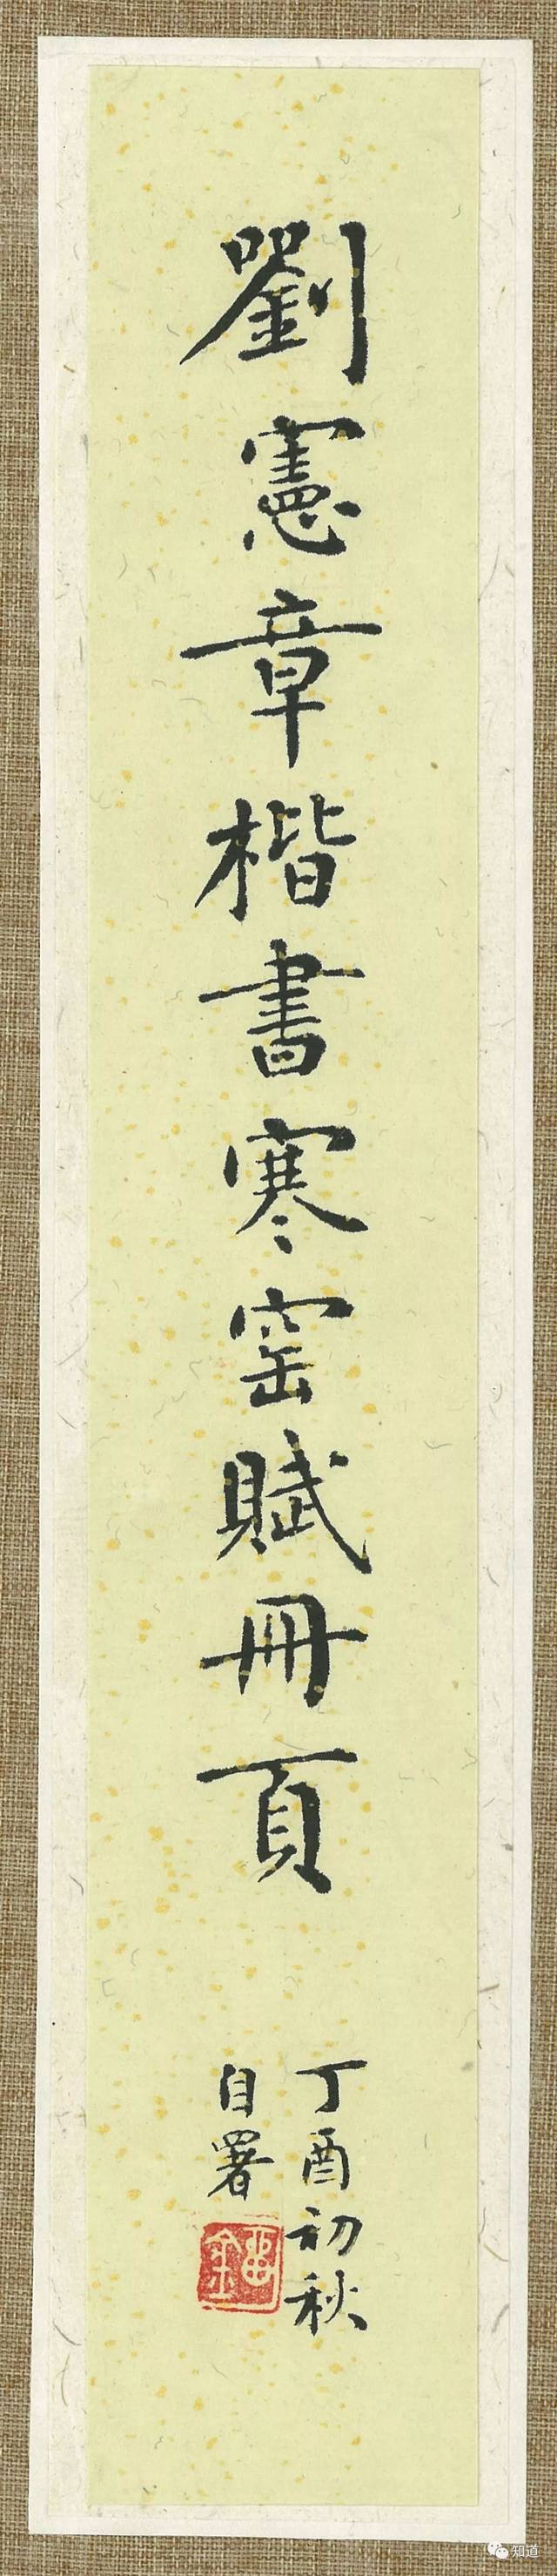 劉憲章楷書寒窑賦冊頁
丁酉初秋
自署
知道